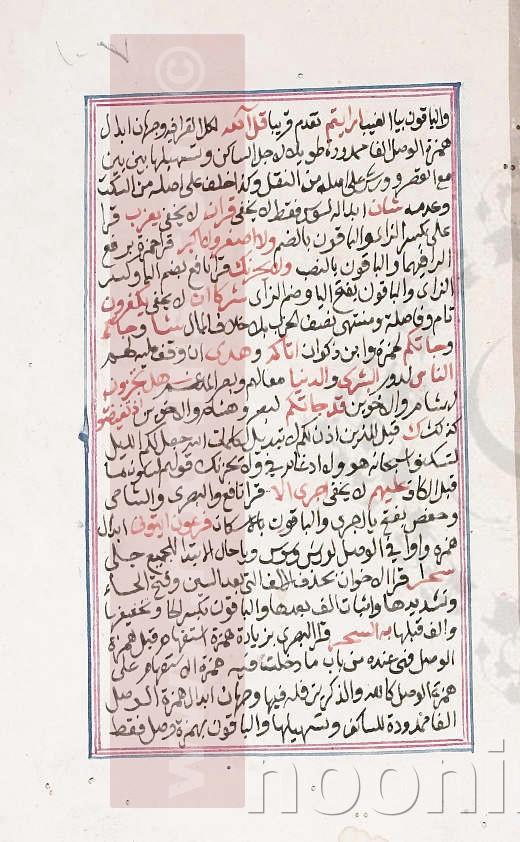 والباقون بياء الغيب ارايتم تقدم قريبا قل آلله لكل القراء فيه وجهان ابدال
همزة الوصل الفا ممدودة طويلا لاجل الساكن وتسهيلها بين بين
مع القصر وورش على اصله من النقل وكذا خلف على اصله من السكت
وعدمه شان ابداله لسوسي فقط لا يخفى قران لا يخفى يعزب قرا
على بكسر الزاى والباقون بالضم ولا اصغر ولا اكبر قرا حمزة برفع
الرا فيهما والباقون بالنصب ولا يحزنك قرا نافع بضم اليا وكسر
الزاى والباقون بفتح اليا وضم الزاى شركا ان لا يخفى يكفرون
تام وفاصلة ومنتهى نصف الحزب بلا خلاف الممال شا وجاتكم
وجاتكم لحمزة وابن ذكوان اتاكم وهدى ان وقف عليه لهم
الناس لدور البشرى والدنيا معا لهم وبصرى هل تجزون
لهشام والاخوين قد جاتكم لبصر وهشام والاخوين اذ تفيضون
كذلك ك قيل للذين اذن لكم لا تبديل لكلمات الله جعل لكم الليل
لتسكنوا سبحانه هو ولا ادغام في ولا يحزنك قولهم لسكون ما
قبل الكاف عليهم لا يخفى اجرى الا قرا نافع والبصرى والشامى
وحفص بفتح يا اجرى والباقون بالاسكان فرعون ائتونى ابدال
همزه واوا فى الوصل لورش وسوسى ويا حال الابتدا للجميع جلى
سحار قرا الاخوان بحذف الالف التى بعد السين وفتح الحاء
وتشديدها واثبات الف بعدها والباقون بكسر الحا وتخفيفها
والف قبلها به السحر قرا البصرى بزيادة همزة استفهام قبل همزة
الوصل فهى عنده من باب ما دخلت فيه همزة الاستفهام على
همزة الوصل كآلله والذكرين فله فيها وجهان ابدال همزة الوصل
الفا ممدودة للساكن وتسهيلها والباقون بهمزة وصل فقط
nooni